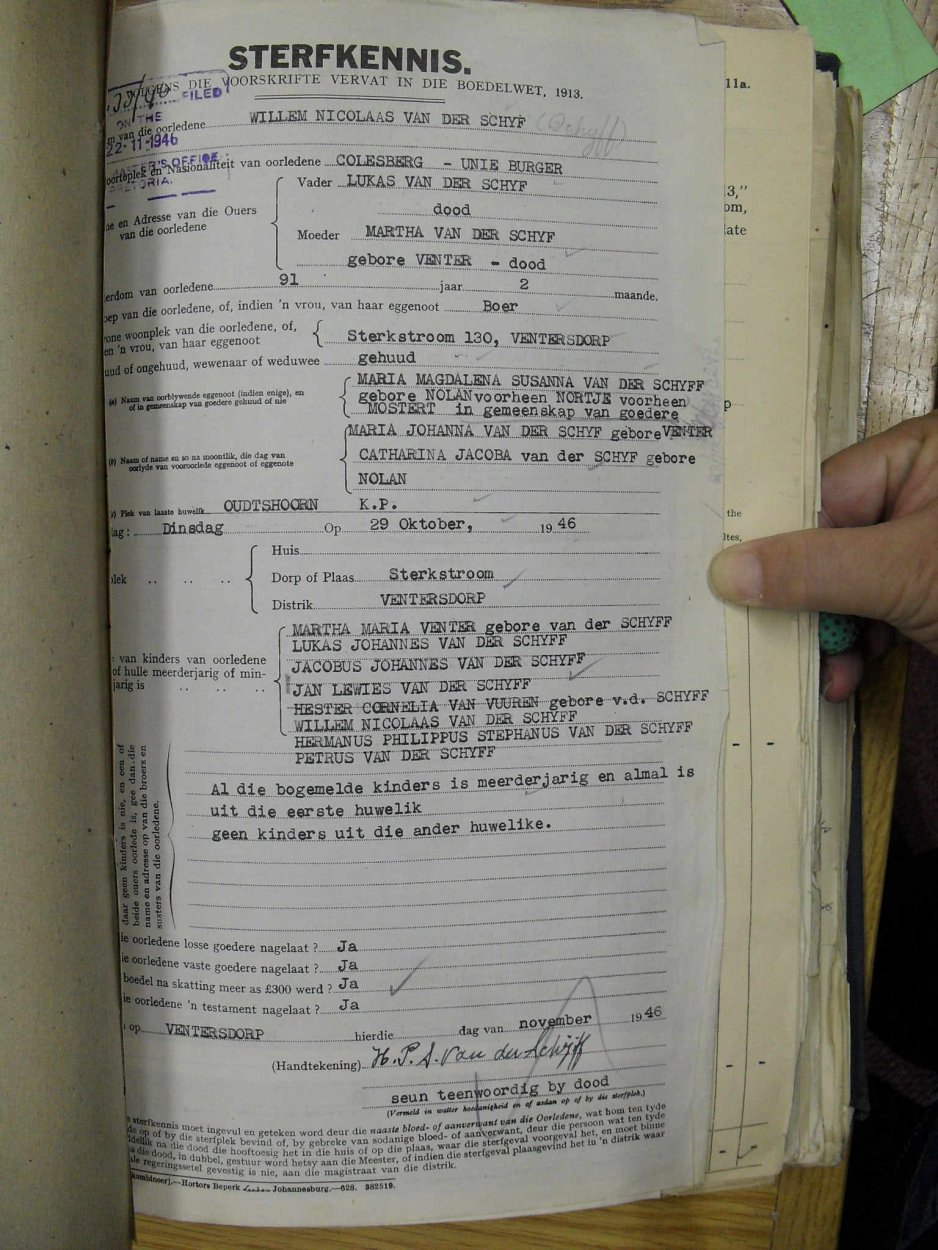 STERFKENNIS.
VOLGENS DIE VOORSKRIFTE VERVAT IN DIE BOEDELWET, 1913.
11a.
FILED
ON THE
22-11-1946
OFFICE
m van die oorledene WILLEM NICOLAAS VAN DER SCHYF (Schyff)
oorteplek en Nasionaliteit van oorledene COLESBERG - UNIE BURGER
Vader LUKAS VAN DER SCHYF
dood
ne en Adresse van die Ouers
van die oorledene
Moeder MARTHA VAN DER SCHYF
gebore VENTER - dood
erdom van oorledene 91 jaar 2 maande.
oep van die oorledene, of, indien 'n vrou, van haar eggenoot Boer
one woonplek van die oorledene, of,
en 'n vrou, van haar eggenoot
Sterkstroom 130, VENTERSDORP
uud of ongehuud, wewenaar of weduwee gehuud
(a) Naam van oorblywende eggenoot (indien enige), en
of in gemeenskap van goedere gehuud of nie
MARIA MAGDALENA SUSANNA VAN DER SCHYFF
gebore NOLANvoorheen NORTJE voorheen
MOSTERT in gemeenskap van goedere
(b) Naam of name en so na moontlik, die dag van
oorlyde van vooroorlede eggenoot of eggenote
MARIA JOHANNA VAN DER SCHYF geboreVENTER
CATHARINA JACOBA van der SCHYF gebore
NOLAN
c) Plek van laaste huwelik OUDTSHOORN K.P.
ag: Dinsdag Op 29 Oktober, 1946
Huis
plek Dorp of Plaas Sterkstroom
Distrik VENTERSDORP
van kinders van oorledene
of hulle meerderjarig of min-
jarig is
MARTHA MARIA VENTER gebore van der SCHYFF
LUKAS JOHANNES VAN DER SCHYFF
JACOBUS JOHANNES VAN DER SCHYFF
JAN LEWIES VAN DER SCHYFF
HESTER CORNELIA VAN VUUREN gebore v.d. SCHYFF
WILLEM NICOLAAS VAN DER SCHYFF
HERMANUS PHILIPPUS STEPHANUS VAN DER SCHYFF
PETRUS VAN DER SCHYFF
daar geen kinders is nie, en een of
beide ouers oorlede is, gee dan die
name en adresse op van die broers en
susters van die oorledene.
Al die bogemelde kinders is meerderjarig en almal is
uit die eerste huwelik
geen kinders uit die ander huwelike.
ie oorledene losse goedere nagelaat ? Ja
ie oorledene vaste goedere nagelaat ? Ja
boedel na skatting meer as £300 werd ? Ja
ie oorledene 'n testament nagelaat ? Ja
op VENTERSDORP hierdie dag van november 1946
(Handtekening) H. P. S. Van der Schijff
seun teenwoordig by dood
(Vermeld in watter hoedanigheid en of asdan op of by die sterfplek.)
sterfkennis moet ingevul en geteken word deur die naaste bloed- of aanverwant van die Oorledene, wat hom ten tyde
de op of by die sterfplek bevind of, by gebreke van sodanige bloed- of aanverwant, deur die persoon wat ten tyde
delik na die dood die hooftoesig het in die huis of op die plaas, waar die sterfgeval voorgeval het, en moet binne
a die dood, in dubbel, gestuur word hetsy aan die Meester, of indien die sterfgeval plaasgevind het in 'n distrik waar
ale regeringssetel gevestig is nie, aan die magistraat van die distrik.
Hortors Beperk Johannesburg.—628. 382519.
13,"
om,
late
the
ltes,